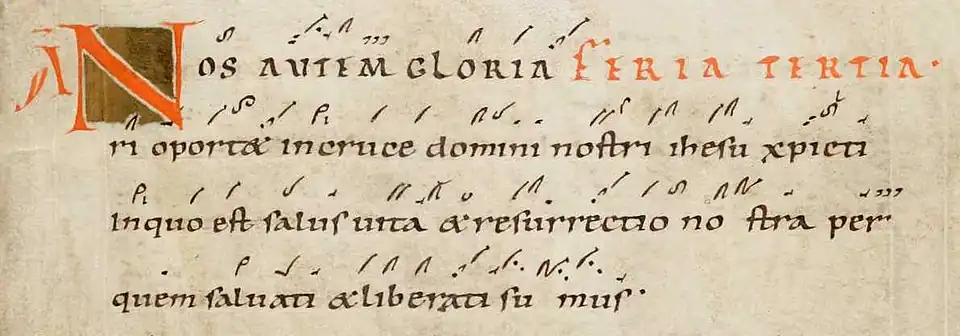 Ā NOS AUTEM GLORIA FERIA TERTIA.
ri oportet in cruce domini nostri ihesu xpicti
In quo est salus uita & resurrectio no stra per
quem saluati & liberati su mus.